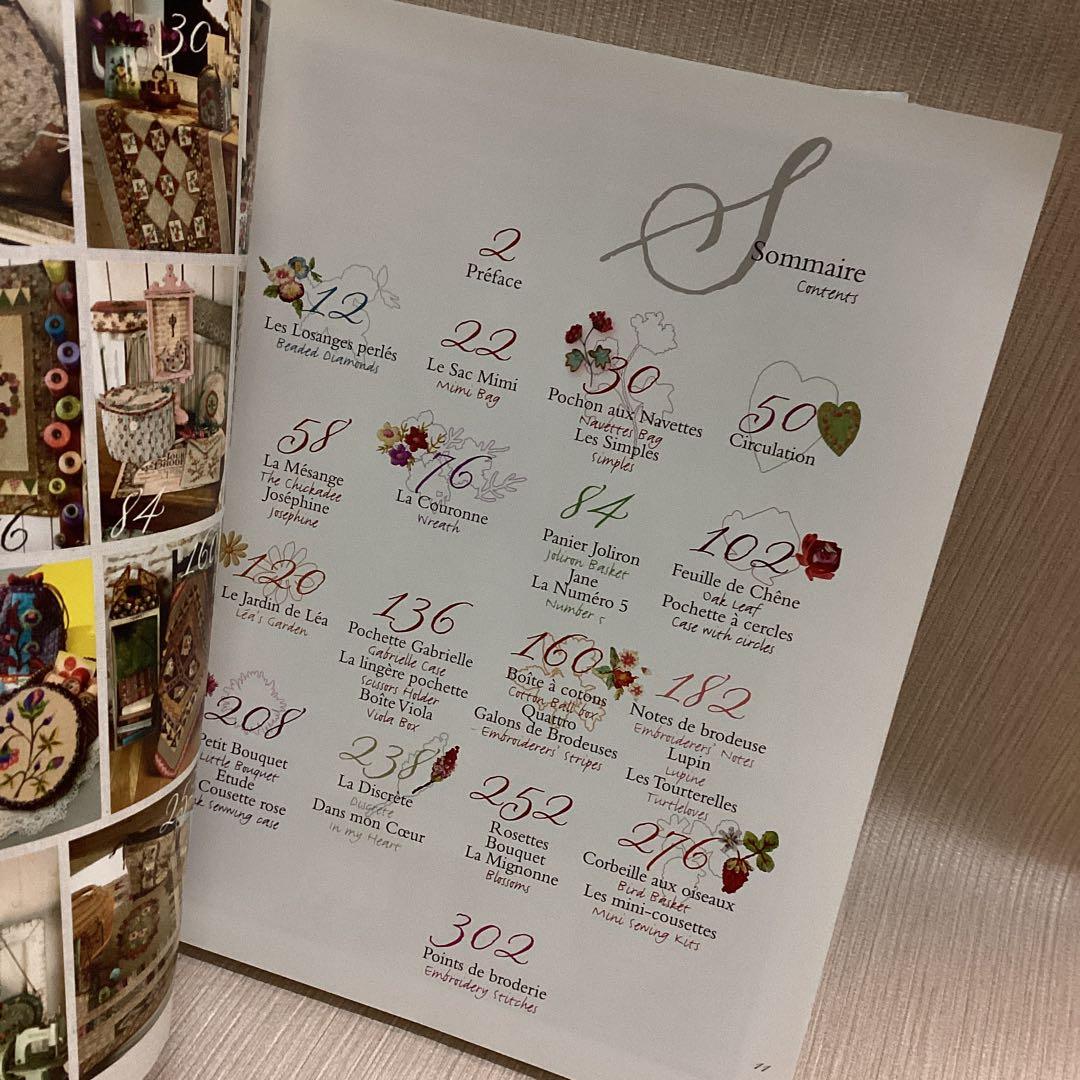 30
84
6
160
2
Sommaire
Contents
2
Préface
12
Les Losanges perlés
Beaded Diamonds
22
Le Sac Mimi
Mimi Bag
30
Pochon aux Navettes
Navettes Bag
Les Simples
Simples
50
Circulation
58
La Mésange
The Chickadee
Joséphine
Josephine
76
La Couronne
Wreath
84
Panier Joliron
Joliron Basket
Jane
La Numéro 5
Number 5
102
Feuille de Chêne
Oak Leaf
Pochette à cercles
Case with circles
120
Le Jardin de Léa
Léa's Garden
136
Pochette Gabrielle
Gabrielle Case
La lingère pochette
Scissors Holder
Boîte Viola
Viola Box
160
Boîte à cotons
Cotton Ball box
Quattro
Galons de Brodeuses
Embroiderers' Stripes
182
Notes de brodeuse
Embroiderers' Notes
Lupin
Lupine
Les Tourterelles
Turtleloves
208
Petit Bouquet
Little Bouquet
Etude
Cousette rose
sewwing case
238
La Discrète
Discrete
Dans mon Cœur
in my Heart
252
Rosettes
Bouquet
La Mignonne
Blossoms
276
Corbeille aux oiseaux
Bird Basket
Les mini-cousettes
Mini Sewing Kits
302
Points de broderie
Embroidery Stitches
11